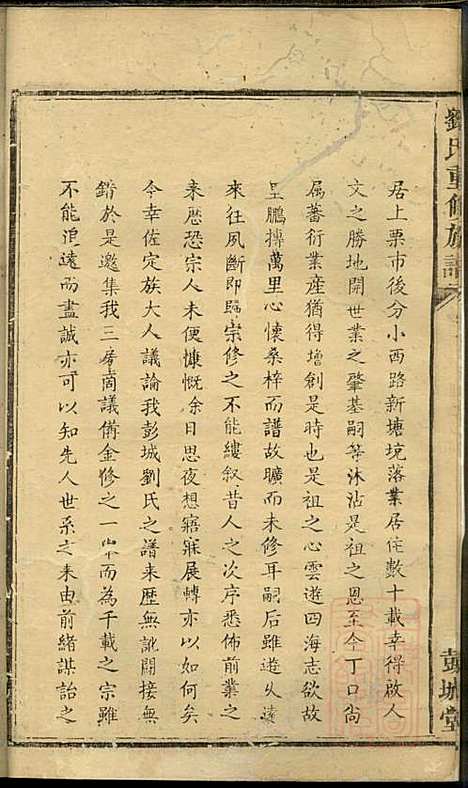 劉氏重修族譜
彭城堂
居上栗市後分小西路新塘垸落業居住數十載幸得啟人
文之勝地開世業之肇基嗣等沐沾是祖之恩至今丁口尚
属蕃衍業産猶得增創是時也是祖之心雲遊四海志欲故
里鵬摶萬里心懷桑梓而譜故曠而未修耳嗣后雖遊火遠
來往夙斷即歸宗修之不能縷叙昔人之次序悉佈前業之
来歷恐宗人未便慷慨余日思夜想寤寐展轉亦以如何矣
今幸佐定族大人議論我彭城劉氏之譜来歷無訛闗接無
錯於是邀集我三房商議俻金修之一宗而為千載之宗雖
不能追遠而盡誠亦可以知先人世系之来由前緒謀詒之